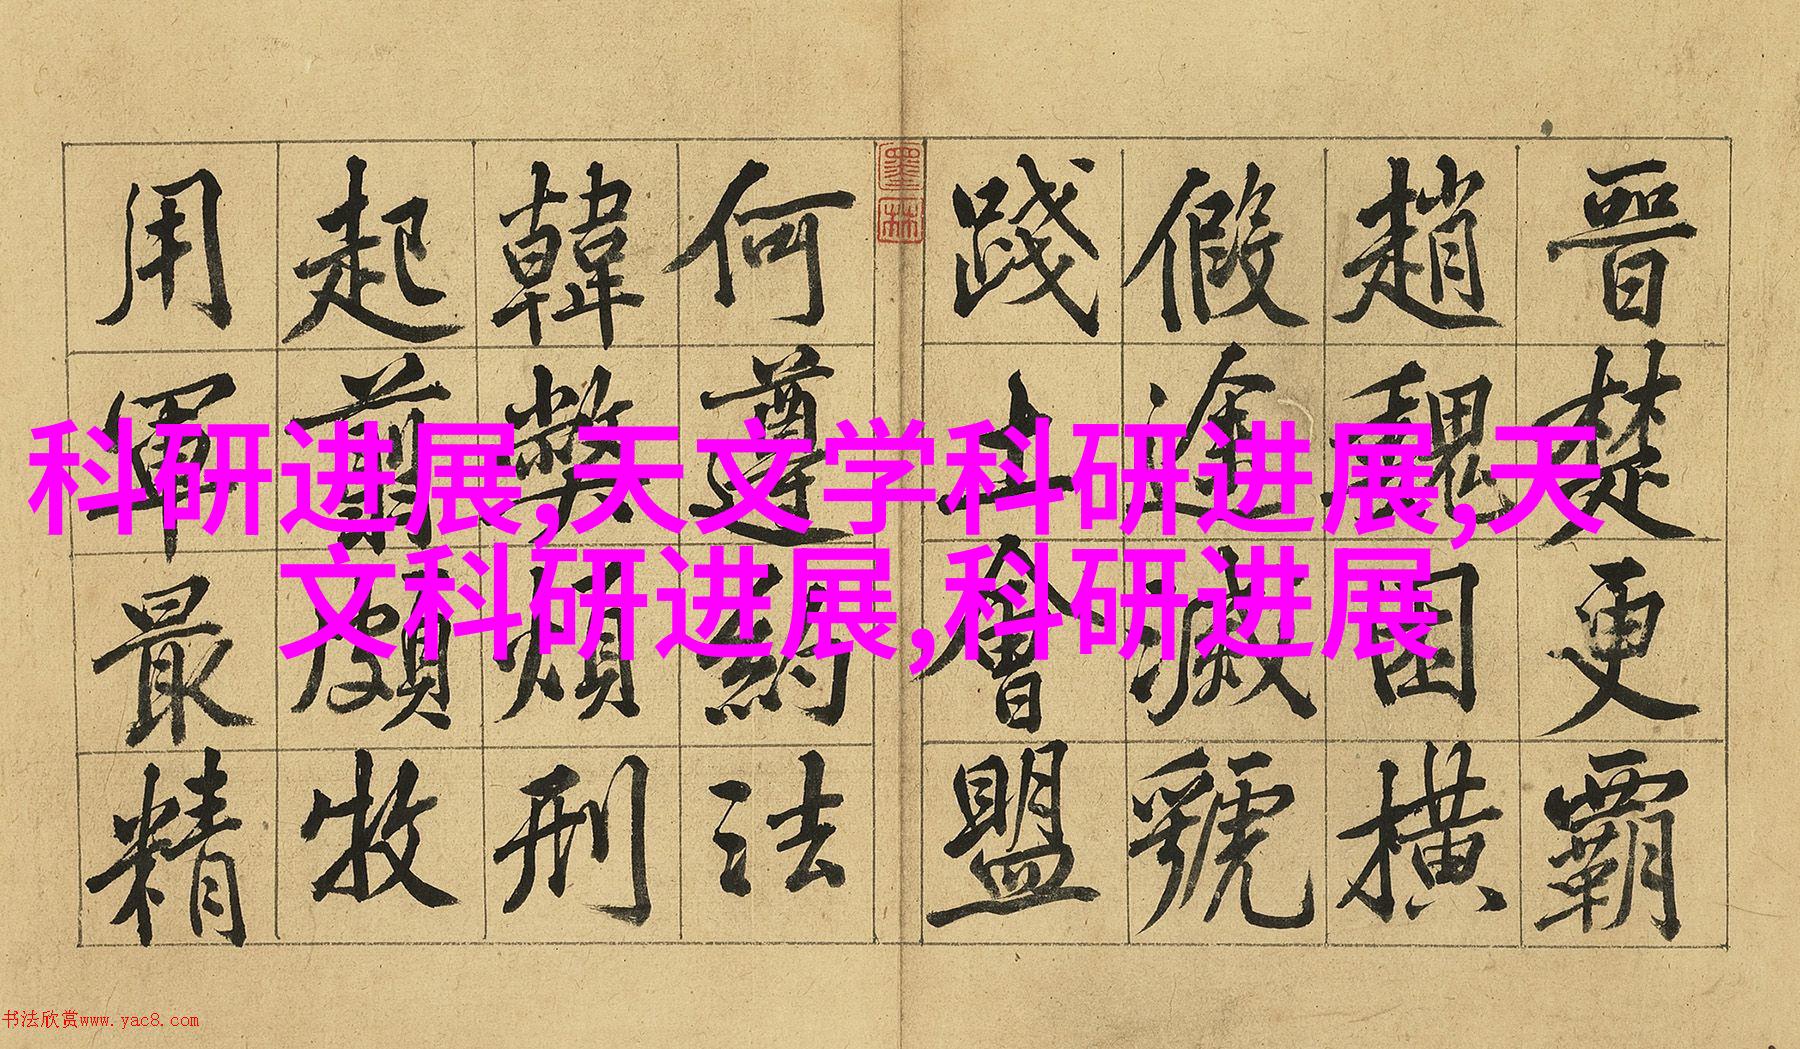 晉楚更霸
趙魏困橫
假途滅虢
踐土會盟
何遵約法
韓弊煩刑
起翦頗牧
用軍最精
墨林
科研进展,天文学科研进展,天
文科研进展,科研进展
书法欣赏www.yac8.com